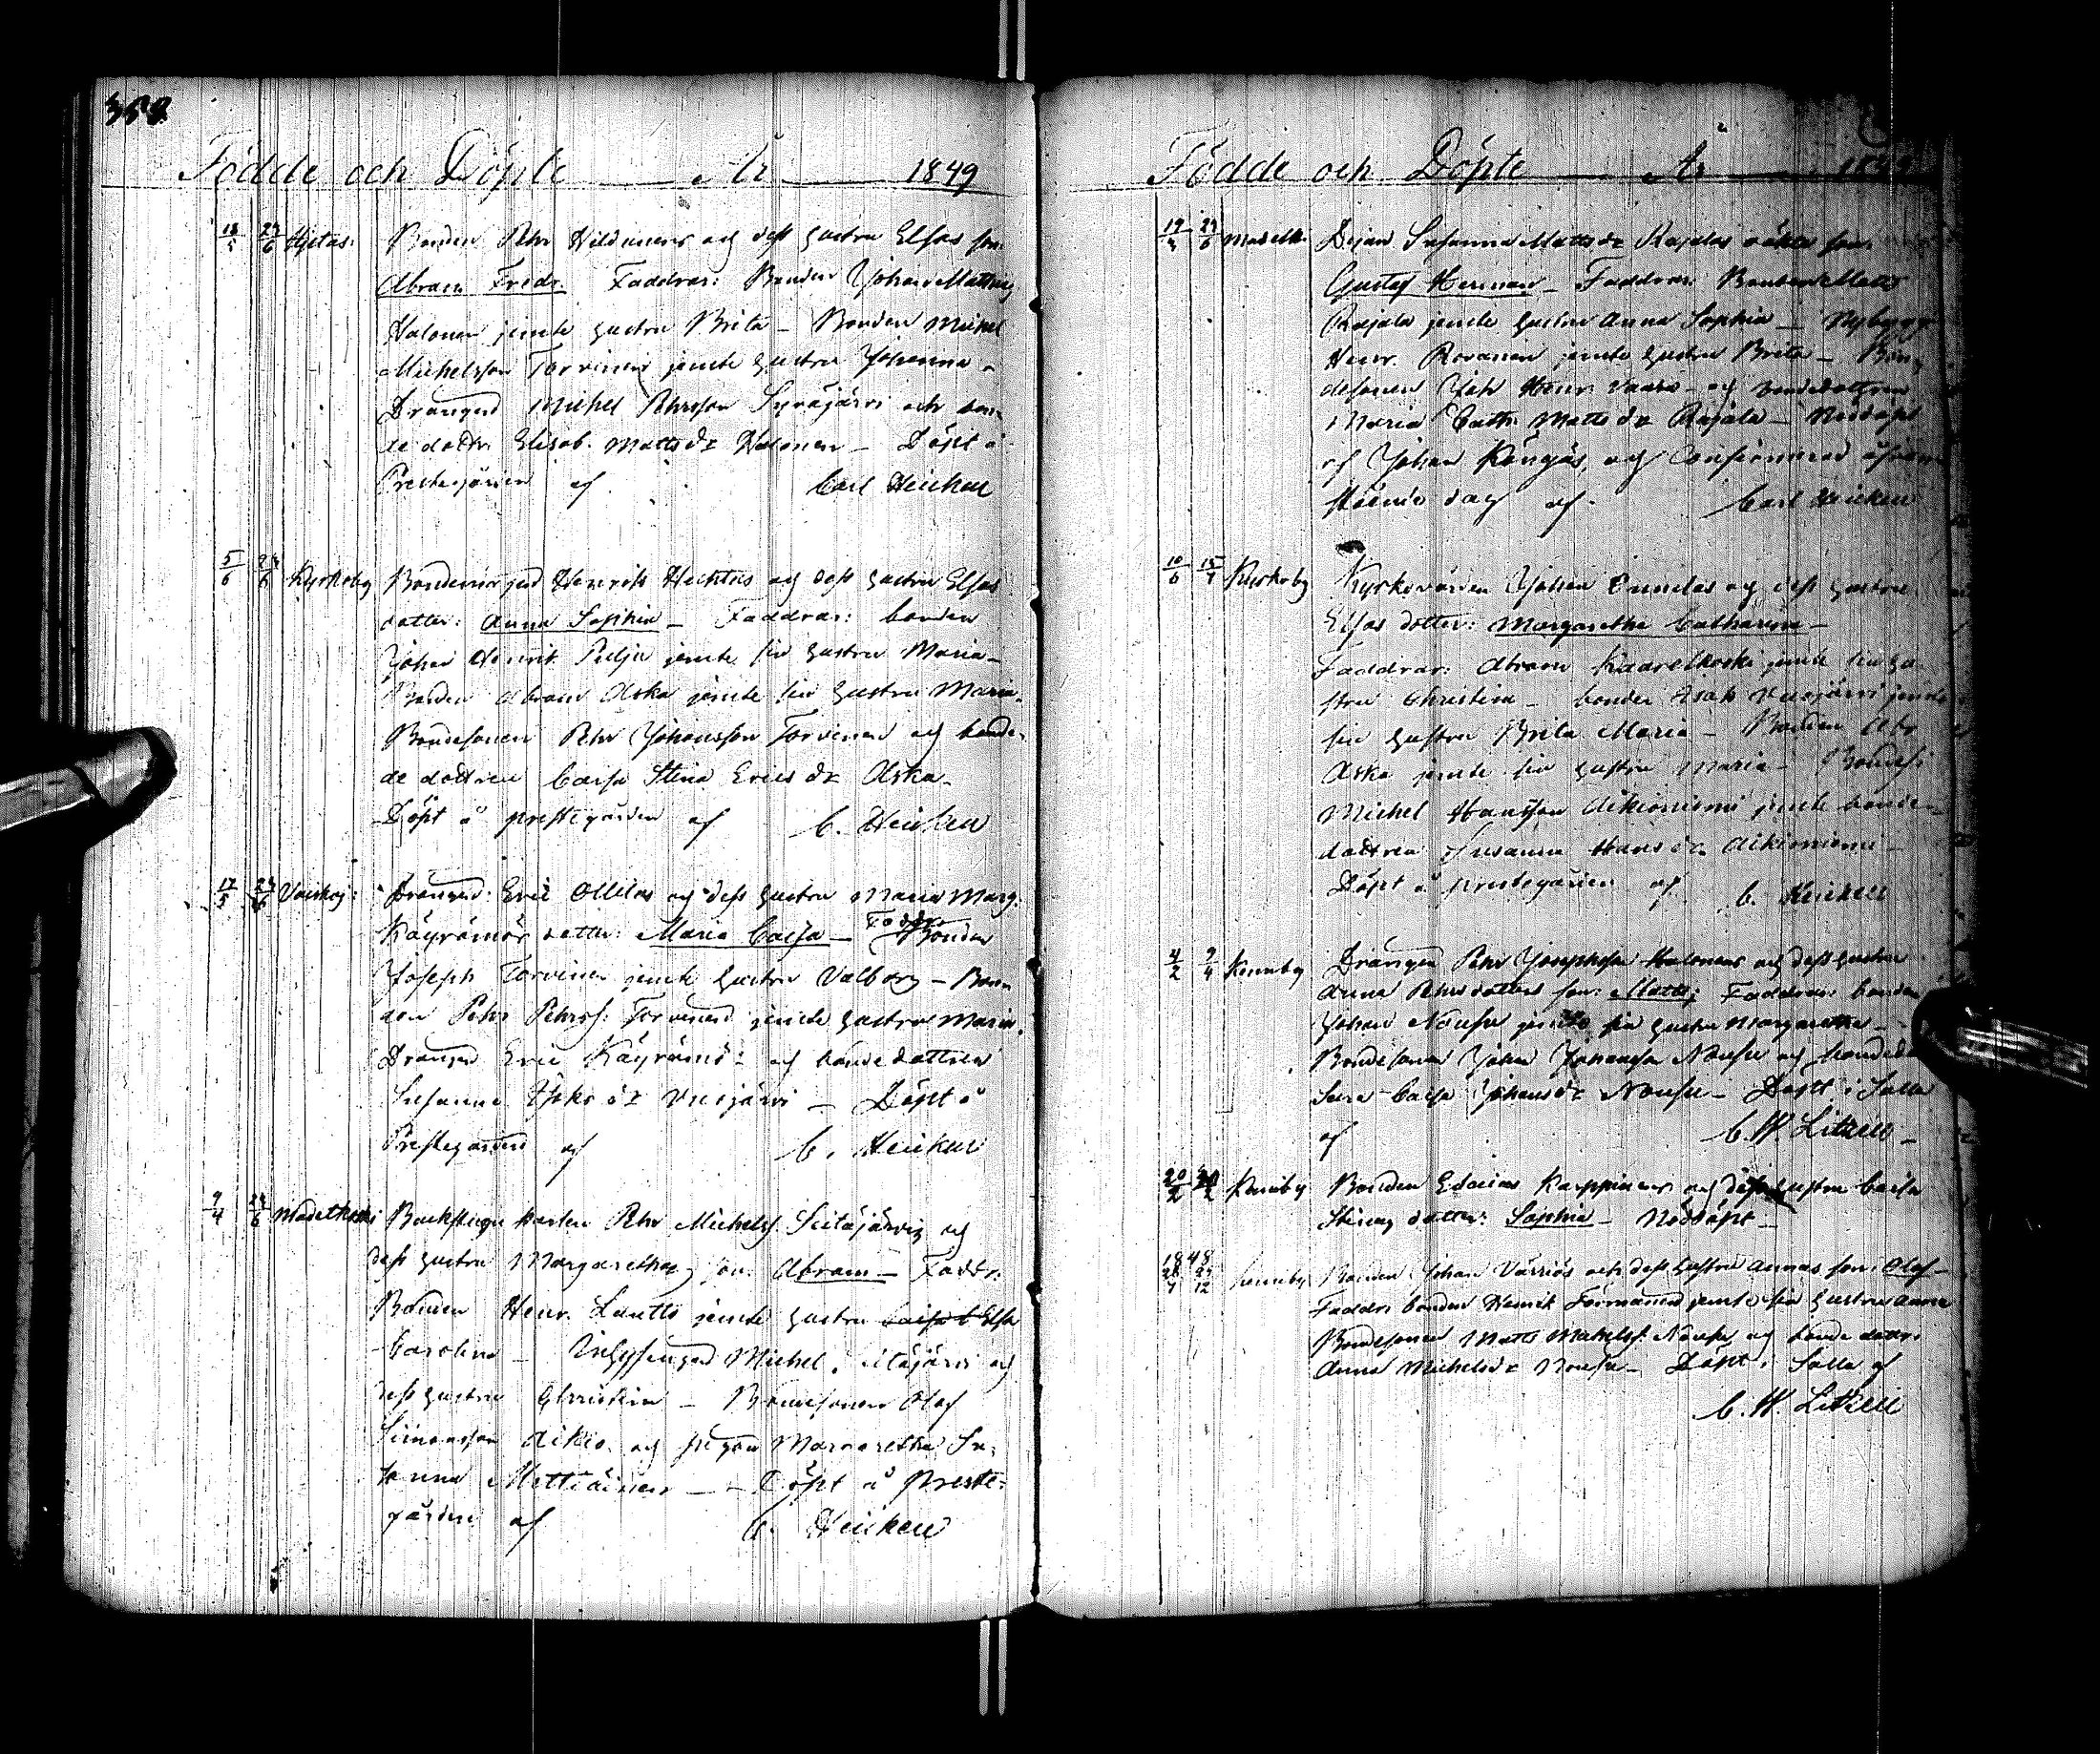 358.
Födde och Döpte År 1849
18/5 24/6 Hjetas: Bonden Pehr Hildunens och dess hustru Elsas son:
Abram Fredr. Faddrar: Bonden Johan Mattss.
Halonen jemte hustru Brita – Bonden Michel
Michelsson Torvinen jemte hustru Johanna –
Drängen Michel Pehrsson Syväjärvi och bon-
de dottr. Elisab. Matts dr Halonen – Döpt å
Prestegården af Carl Heickell
5/6 24/6 Kyrkoby Bonden Henriks Hechtas och dess hustru Elsas
dotter: Anna Sophia – Faddrar: bonden
Johan Henrik Pulju jemte sin hustru Maria –
Bonden Abram Aska jemte sin hustru Maria –
Bondesonen Pehr Johansson Torvinen och bon-
de dottren Caisa Stina Erics dr Aska –
Döpt å prestegården af C. Heickell
17/5 24/6 Drängen Eric Ollilas och dess hustru Maria Marg.
Käyrämös dotter: Maria Caisa – Faddr. Bonden
Joseph Torvinen jemte hustru Valborg – Bon-
den Pehr Pehrss: Torvinen jemte hustru Maria.
Drängen Eric Käyrämö – och bonde dottren
Susanna Isaks dr Vuojärvi – Döpt å
Prestegården af C. Heickell
9/4 24/6 Madetkoski Backstugu karlen Pehr Michelss. Seitajärvis och
dess hustru Margarethas son: Abram – Faddr:
Bonden Henr. Lautto jemte hustru Elsa
Carolina – Inhysingen Michel Seitajärvi och
dess hustru Christina – Bondesonen Olof
Simonsson Aikio och pigan Margaretha Su-
sanna Mettiäinen – Döpt å Preste-
gården af C. Heickell
Födde och Döpte År 1849
19/4 24/6 Madetk. Pigan Susanna Matts dr Rajalas oäkta son:
Gustaf Herman – Faddrar: Bonden Matts
Rajala jemte hustru Anna Sophia – Nybygg.
Henr. Rovanen jemte hustru Brita – Bon-
desonen Joh. Henr. Vaara – och bondedottren
Maria Cath. Matts dr Rajala – Nöddöpt
af Johan Köngäs, och Confirmerad
dag af Carl Heickell
10/6 15/7 Kyrkoby Kyrkovärden Johan Onnelas och dess hustru
Elsas dotter: Margaretha Catharina –
Faddrar: Abram Kaarelkoski jemte sin hu-
stru Christina – bonden Isak Vuojärvi jemte
sin hustru Brita Maria – Bonden Abr.
Aska jemte sin hustru Maria – Bondes:
Michel Hansson Aikioniemi jemte bonde-
dottren Susanna Hans dr Aikioniemi –
Döpt å prestegården af C. Heickell
4/2 9/4 Drängen Pehr Josephsson Halonens och dess hustru
Anna Pehrs dotters son: Matts; Faddrar: bonden
Johan Nousu jemte sin hustru Margaretha –
Bondesonen Johan Johansson Nousu och bondedo
Caisa Johans dr Nousu – Döpt i Salla
af C. W. Litzell –
20/2 Bonden Edvias Karppinens och dess hustru Caisa
Stinas dotter: Sophia – Nöddöpt –
1848
27/12 Bonden Johan Värriös och dess hustru Annas son: Olof –
Faddr. bonden Henrik Törmänen jemte sin hustru Anna
Bondesonen Matts Michelss. Nousu och bonde dottr.
Anna Michels dr Nousu – Döpt i Salla af
C. W. Litzell